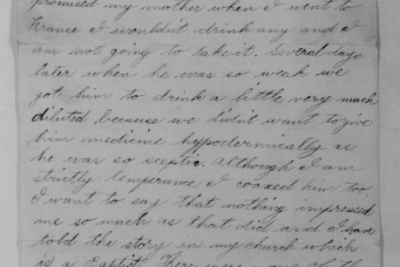 promised my mother when I went to
France I wouldn't drink any and I
am not going to take it. Several days
later when he was so weak we
got him to drink a little very much
diluted because we didn't want to give
him medicine hypodermically as
he was so sceptic. Although I am
strictly temperance I coaxed him too
I want to say that nothing impressed
me so much as that did and I have
told the story in my church which
is a Baptist. There were